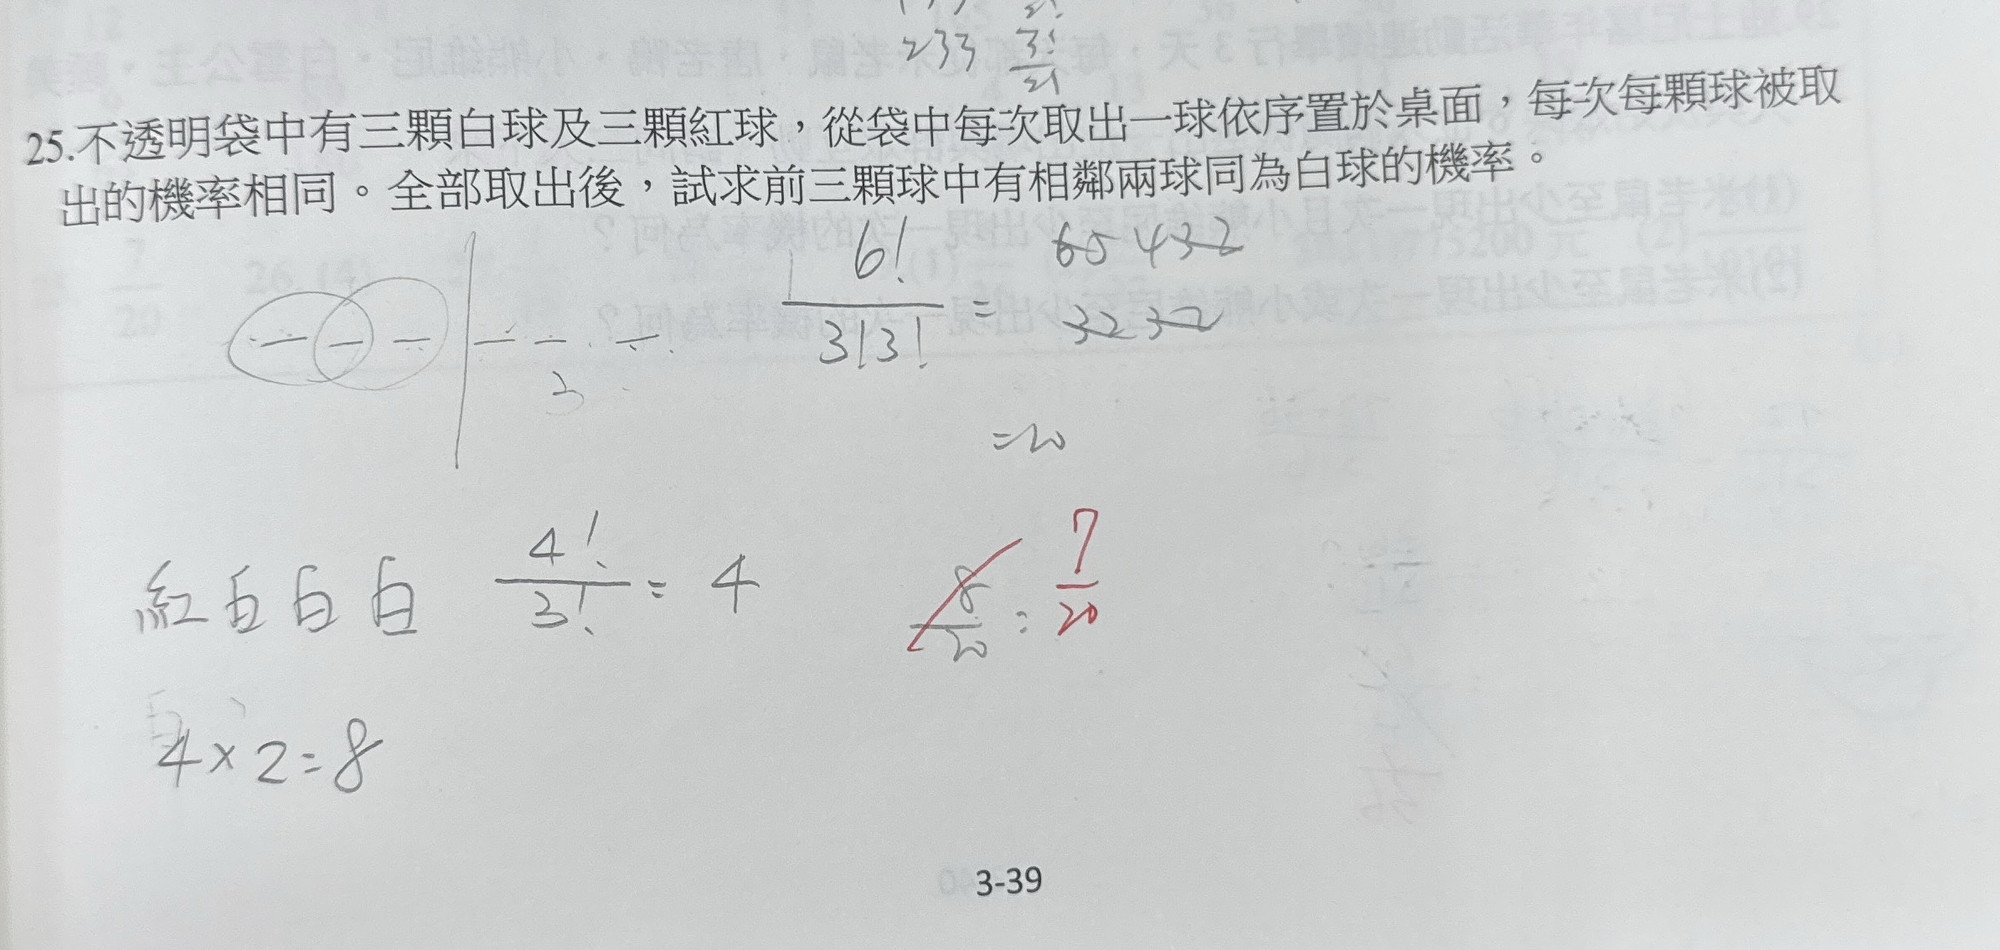 233 3!/2!
25.不透明袋中有三顆白球及三顆紅球，從袋中每次取出一球依序置於桌面，每次每顆球被取
出的機率相同。全部取出後，試求前三顆球中有相鄰兩球同為白球的機率。
6!/3!3! = 65432/3232
3
=20
紅白白白 4!/3! = 4
8/20 = 7/20
4×2=8
3-39